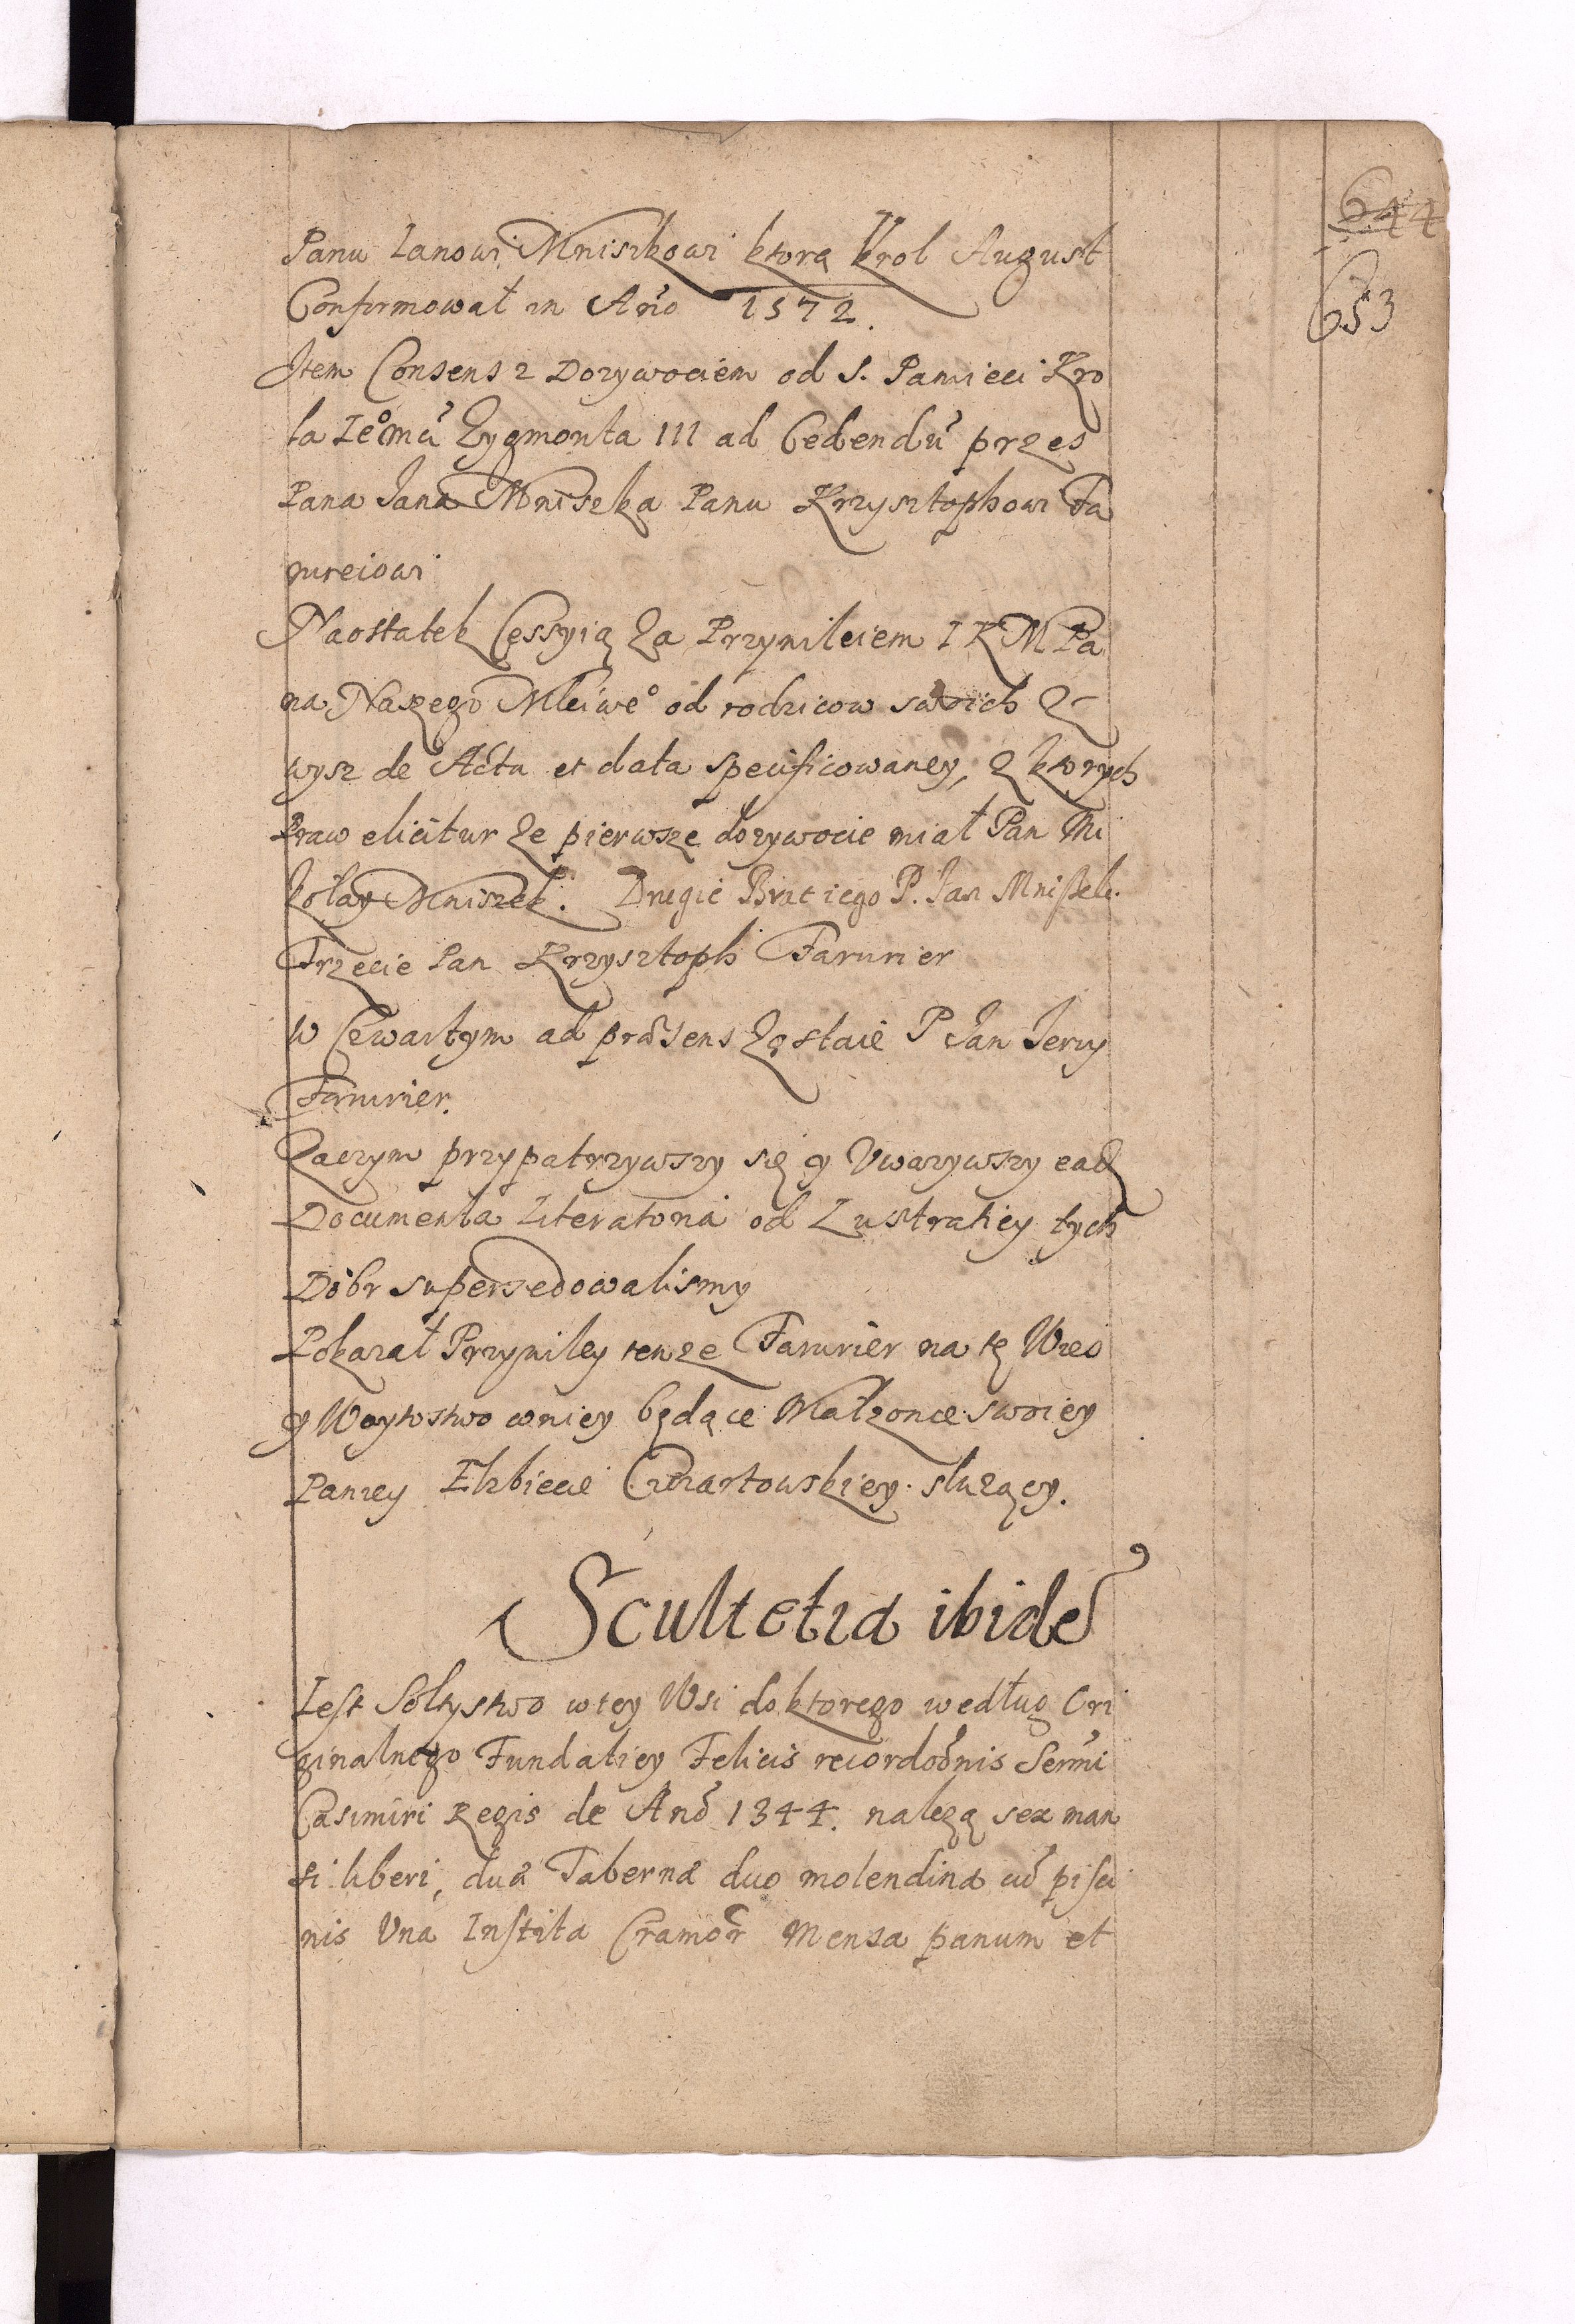 644
653
Panu Ianowi Mniszkowi ktorą Krol August
Confirmował in Ano 1572.
Item Consens z Dozywociem od S. Pamieci Kro
la Ie°mci Zygmonta III ad Cedendu przes
Pana Jana Mniszka Panu Krzysztophowi Fa
rureiowi
Naostatek Cessyią za Przywileiem I K M Pa
na Naszego Mciwe° od rodzicow swoich z
wysz de Actu et data specificowaney, z ktorych
Praw elicitur ze pierwsze dozywocie miał Pan Mi
kołay Mniszek. Drugie Brat iego P. Jan Mnißek.
Trzecie Pan Krzysztoph Farurier
w Czwartym ad præsens zostaie P Jan Jerzy
Farurier.
Zaczym przypatrzywszy się y Uwazywszy ead
Documenta Literatoria od Lustratiey tych
Dobr supersedowalismy
Pokazał Przywiley tenze Farurier na tę Wieś
y Woytostwo wniey będące Małzonce swoiey
Paniey Elzbiecie Czartowskiey słuzący.
Scultetia ibide
Iest Sołtystwo wtey Wsi do ktorego według Ori
ginalnego Fundatiey Felicis recordonis Sermi
Casimiri Regis de Ano 1344. nalezą sex man
si liberi, duæ Tabernæ duo molendina cu pisci
nis Una Instita Cramor Mensa panum et